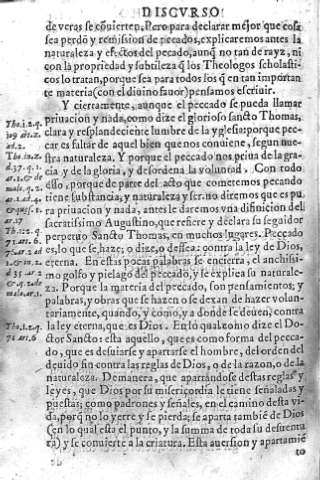 DISCVRSO
de veras se cõuierten. Pero para declarar mejor que cosa
sea perdõ y remision de pecados, explicaremos antes la
naturaleza y efectos del pecado, aunq̃ no tan de rayz, ni
con la propriedad y subtileza q̃ los Theologos scholasti-
cos lo tratan, porque sea para todos los q̃ en tan importan
te materia (con el diuino fauor) pensamos escriuir.
Y ciertamente, aunque el peccado se pueda llamar
priuacion y nada, como dize el glorioso sancto Thomas,
clara y resplandeciente lumbre de la yglesia: porque pec-
car es faltar de aquel bien que nos conuiene, segun nue-
stra naturaleza. Y porque el peccado nos priua de la gra-
cia y de la gloria, y desordena la voluntad. Con todo
esso, porque de parte del acto que cometemos pecando
tiene substancia, y naturaleza y ser: no diremos que es pu
ra priuacion y nada, antes le daremos vna difinicion del
sacratissimo Augustino, que refiere y declara su segaidor
perpetuo Sancto Thomas, en muchos lugares. Peccado
es, lo que se haze; o dize, o dessea: contra la ley de Dios,
eterna. En estas pocas palabras se encierra, el anchissi-
mo golfo y pielago del peccado, y se explica su naturale-
za. Porque la materia del peccado, son pensamientos; y
palabras, y obras que se hazen o se dexan de hazer volun-
tariamente, quando, y como, y a donde se deuen, contra
la ley eterna, que es Dios. En lo qual como dize el Do-
ctor Sancto: esta aquello, que es como forma del pecca-
do, que es desuiarse y apartarse el hombre, del orden del
deuido fin contra las reglas de Dios, o de la razon, o de la
naturaleza. De manera, que apartandose destas reglas y
leyes, que Dios por su misericordia le tiene señaladas y
puestas; como padrones y señales, en el camino desta vi-
da, porq̃ no lo yerre y se pierda; se aparta tambiẽ de Dios
(en lo qual esta el punto, y la summa de toda su desuentu
ra) y se conuierte a la criatura. Esta auersion y apartamiẽ
to
Tho. 1. 2. q.
ad. 2.
Tho. 1. 2. q.
71. ar. 6